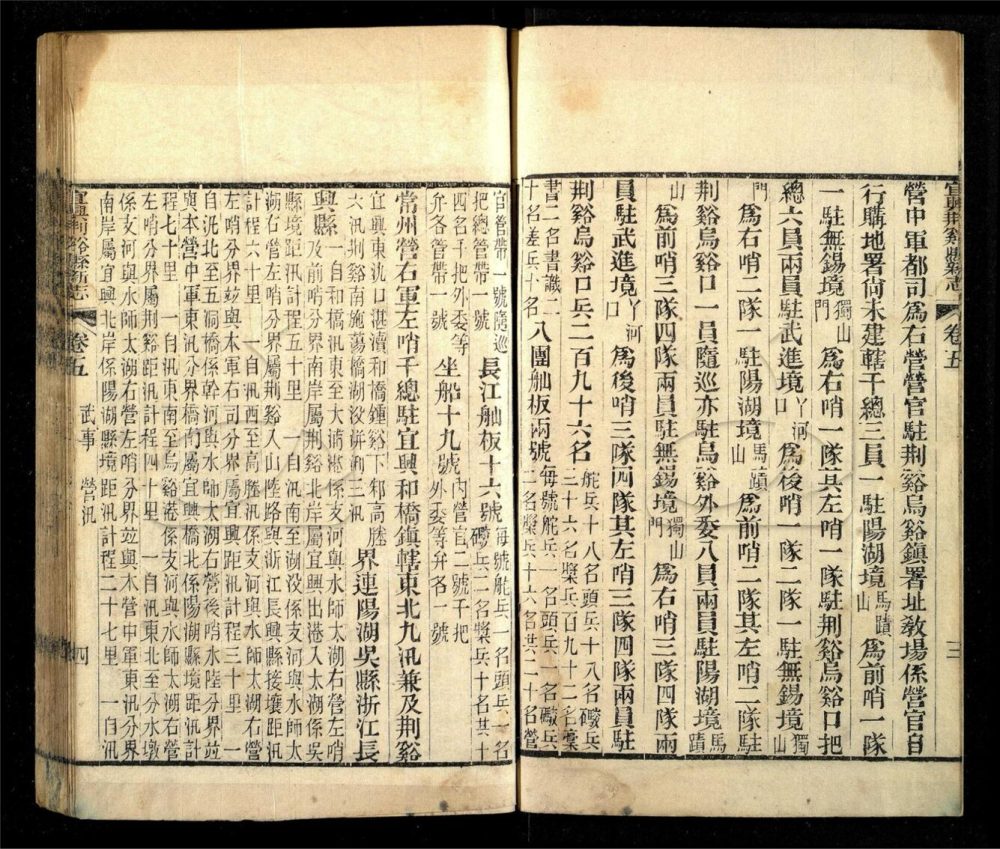 宜興荆谿縣新志 卷五 三
營中軍都司爲右營營官駐荆谿烏谿鎮署址敎場係營官自
行購地署尙未建轄千總三員一駐陽湖境馬蹟山爲前哨一隊
一駐無錫境獨山門爲右哨一隊其左哨一隊駐荆谿烏谿口把
總六員兩員駐武進境丫河口爲後哨一隊二隊一駐無錫境獨山
門爲右哨二隊一駐陽湖境馬蹟山爲前哨二隊其左哨二隊駐
荆谿烏谿口一員隨巡亦駐烏谿外委八員兩員駐陽湖境馬蹟
山爲前哨三隊四隊兩員駐無錫境獨山門爲右哨三隊四隊兩
員駐武進境丫河口爲後哨三隊四隊其左哨三隊四隊兩員駐
荆谿烏谿口兵二百九十六名舵兵十八名頭兵十八名礮兵三十六名槳兵百九十二名稾
書二名書識二十名差兵十名八團舢板兩號每號舵兵一名頭兵一名礮兵二名槳兵十六名共二十名營
官管帶一號隨巡把總管帶一號長江舢板十六號每號舵兵一名頭兵一名礮兵二名槳兵十名共十
四名千把外委等弁各管帶一號坐船十九號內營官二號千把外委等弁各一號
常州營右軍左哨千總駐宜興和橋鎮轄東北九汛兼及荆谿
宜興東氿口湛瀆和橋鍾谿下邾高塍六汛荆谿南施蕩橋湖㳇洴浰三汛界連陽湖吳縣浙江長
興縣一自和橋汛東至大浦港係支河與水師太湖右營左哨及前哨分界南岸屬荆谿北岸屬宜興出港入太湖係吳
縣境距汛計程五十里一自汛南至湖㳇係支河與水師太湖右營左哨分界屬荆谿入山陸路與浙江長興縣接壤距汛
計程六十里一自汛西至高塍汛係支河與水師太湖右營左哨分界竝與本軍右司分界屬宜興距汛計程三十里一
自汛北至五洞橋係幹河與水師太湖右營後哨水陸分界竝與本營中軍東汛分界橋南屬宜興橋北係陽湖縣境距汛計
程七十里一自汛東南至烏谿港係支河與水師太湖右營左哨分界屬荆谿距汛計程四十里一自汛東北至分水墩
係支河與水師太湖右營左哨分界竝與本營中軍東汛分界南岸屬宜興北岸係陽湖縣境距汛計程二十七里一自汛
宜興荆谿縣新志 卷五 武事 營汛 四